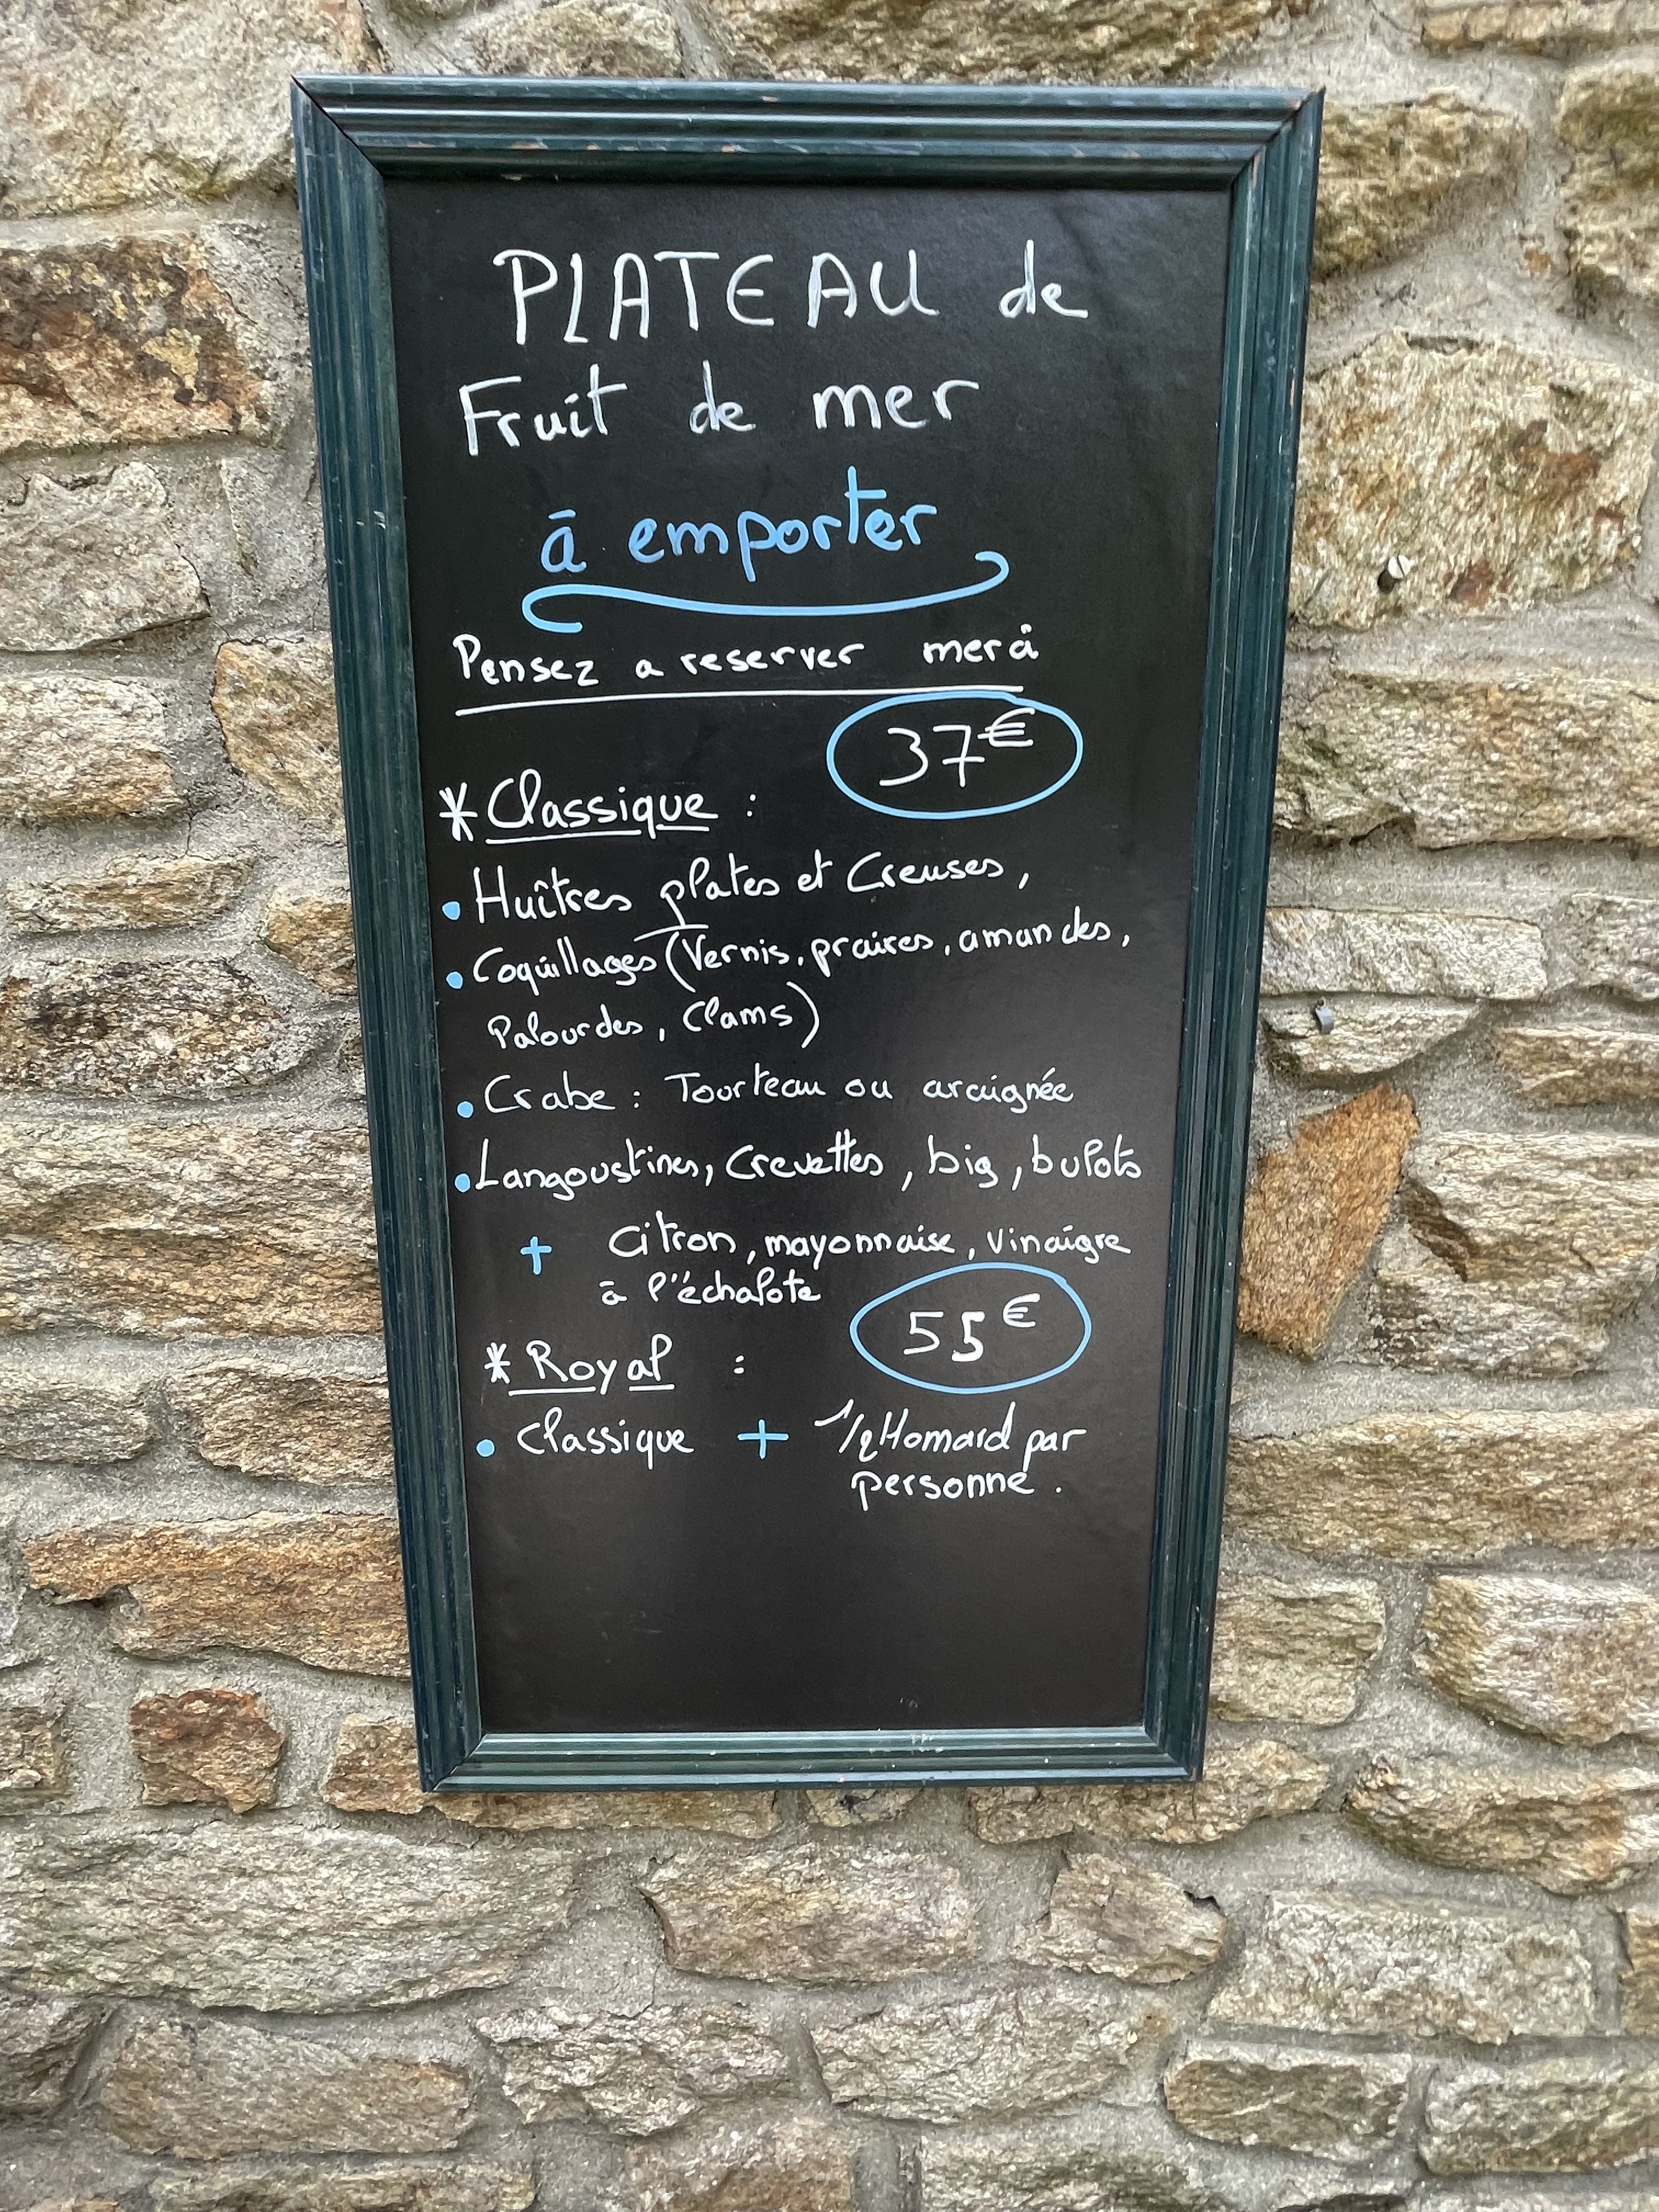 PLATEAU de
Fruit de mer
à emporter
Pensez a reserver merci
37€
* Classique :
• Huîtres plates et Creuses,
• Coquillages (Vernis, praires, amandes,
Palourdes, Clams)
• Crabe : Tourteau ou araignée
• Langoustines, Crevettes, big, bulots
+ Citron, mayonnaise, vinaigre
à l'échalote
55€
* Royal :
• Classique + 1/2 Homard par
personne.